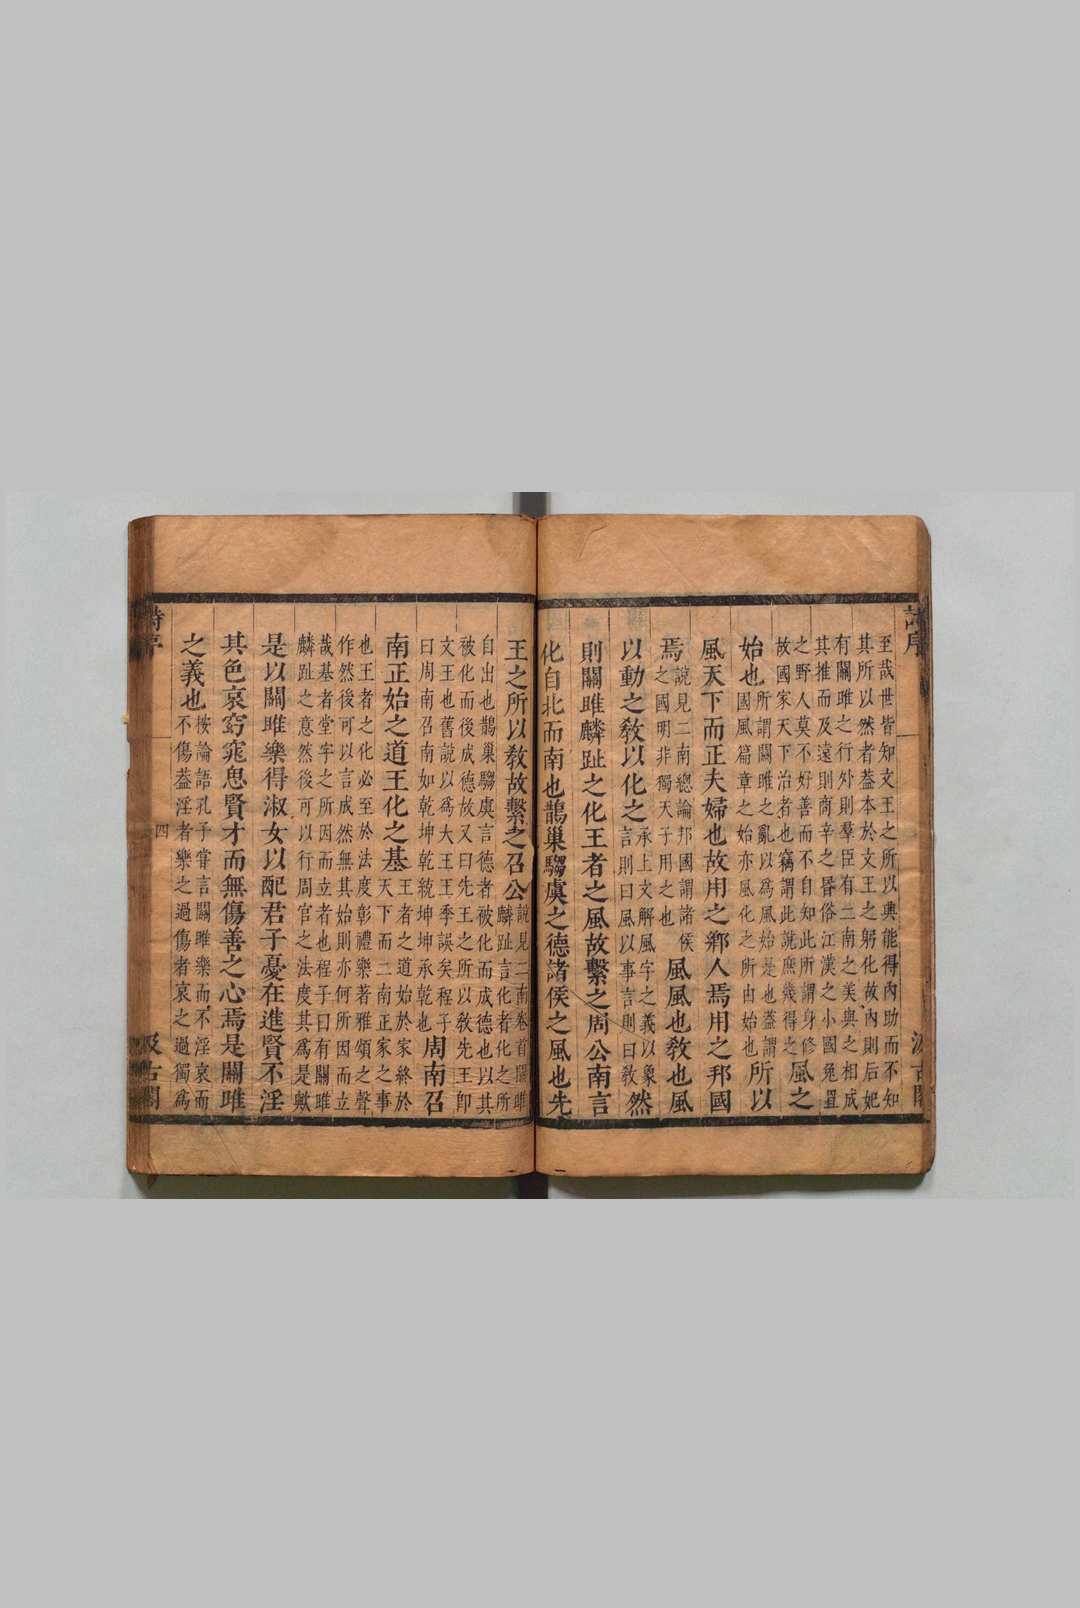 至哉世皆知文王之所以興能得內助而不知
其所以然者蓋本於文王之躬化故內則后妃
有關雎之行外則羣臣有二南之美與之相成
其推而及遠則商辛之昬俗江漢之小國兔罝
之野人莫不好善而不自知此所謂身修
故國家天下治者也竊謂此說庶幾得之
風之
始也
所謂關雎之亂以爲風始是也蓋謂
國風篇章之始亦風化之所由始也
所以
風天下而正夫婦也故用之鄉人焉用之邦國
焉
說見二南總論邦國謂諸侯
之國明非獨天子用之也
風風也敎也風
以動之敎以化之
承上文解風字之義以象
言則曰風以事言則曰敎
然
則關雎麟趾之化王者之風故繫之周公南言
化自北而南也鵲巢騶虞之德諸侯之風也先
王之所以敎故繫之召公
說見二南卷首關雎
麟趾言化者化之所
自出也鵲巢騶虞言德者被化而成德也以其
被化而後成德故又曰先王之所以敎先王卽
文王也舊說以爲大王王季誤矣程子
曰周南召南如乾坤乾統坤坤承乾也
周南召
南正始之道王化之基
王者之道始於家終於
天下而二南正家之事
也王者之化必至於法度彰禮樂著雅頌之聲
作然後可以言成然無其始則亦何所因而立
哉基者堂宇之所因而立者也程子曰有關雎
麟趾之意然後可以行周官之法度其爲是歟
是以關雎樂得淑女以配君子憂在進賢不淫
其色哀窈窕思賢才而無傷善之心焉是關雎
之義也
按論語孔子嘗言關雎樂而不淫哀而
不傷蓋淫者樂之過傷者哀之過獨爲
詩序
四
汲古閣